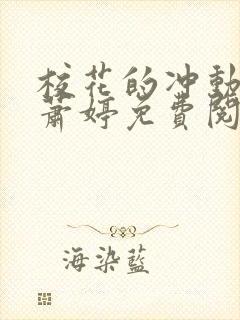 校花的冲動
萧婷免費閱
海染藍